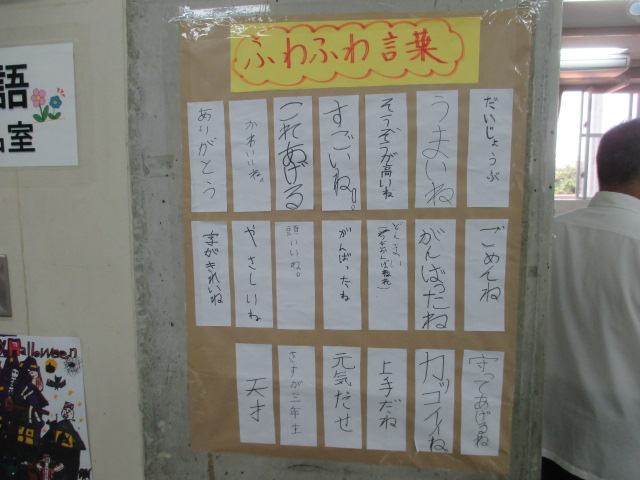 ふわふわ言葉
だいじょうぶ
うまいね
そうぞうが高いね
すごいね!。
これあげる
かわいいね。
ありがとう
ごめんね
がんばったね
どんまい
がんばったね
頭いいね。
やさしいね
字がきれいね
守ってあげるね
カッコイイね
上手だね
元気だせ
さすが三年生
天才
語
室
Halloween